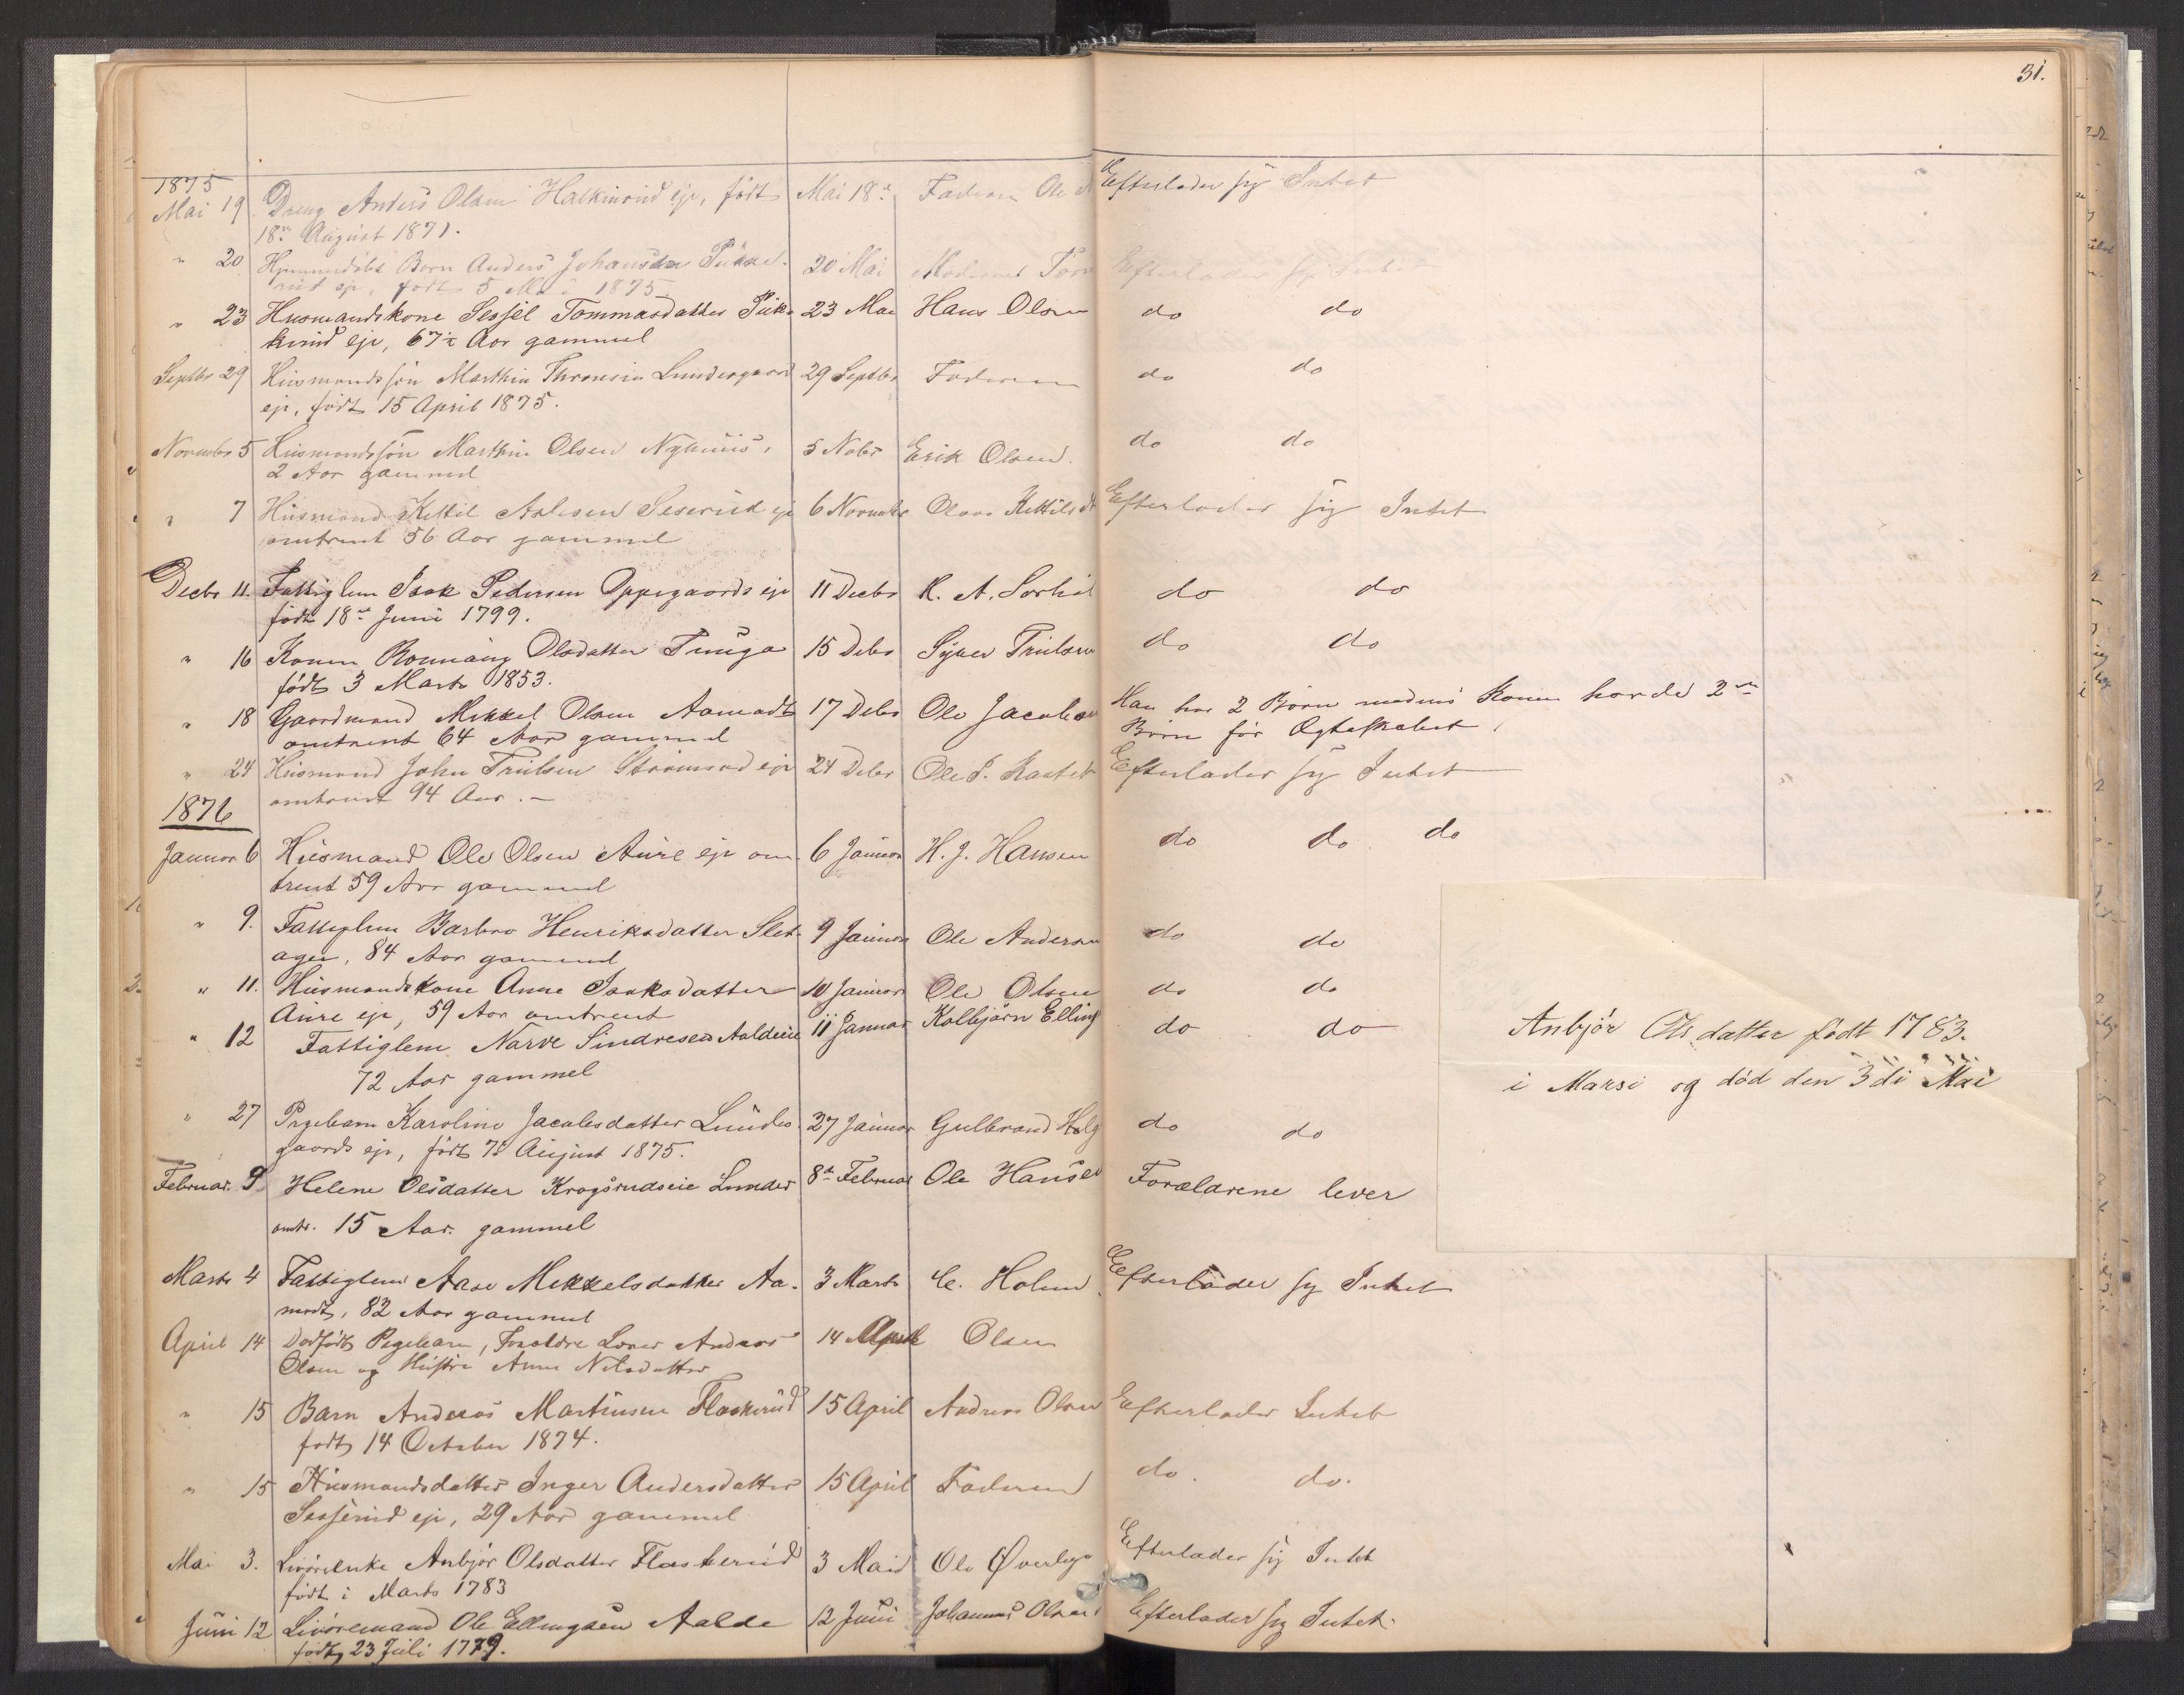 31.
1875
Mai 19 Dreng Anders Olsen Halkinrud eje, født Mai 18de Faderen Ole Efterlader sig Intet
18de August 1871.
" 20 Hjemmedøbt Barn Anders Johansen 20 Mai Moderen Efterlader sig Intet
rud eje, født 5 Mai 1875
" 23 Husmandskone Sessel Tommasdatter 23 Mai Hans Olsen do do
eje, 67½ Aar gammel
Septbr 29 Huusmands søn Marthin Thronsen Lundesgaard 29 Septbr Faderen do do
eje, født 15 April 1875.
November 5 Huusmandssøn Marthin Olsen Nyhuus, 5 Nobr Erik Olsen. do do
2 Aar gammel
" 7 Huusmand Kittil Aslesen Seserud eje 6 November Olava Kittilsdt Efterlader sig Intet
omtrent 56 Aar gammel
Decbr 11. Fattiglem Isak Pedersen Oppegaards eje 11 Decbr K. A. do do
født 18de Juni 1799.
" 16 Konen Rønnaug Olsdatter Tunga 15 Debr Syver Trulsen do do
født 3 Marts 1853.
" 18 Gaardmand Mikkel Olsen Aamodt 17 Debr Ole Jacobsen Han har 2 Børn medens Konen havde 2de
omtrent 64 Aar gammel Børn før Ægteskabet
" 24 Huusmand John Trulsen eje 24 Debr Ole P. Efterlader sig Intet
omtrent 94 Aar. –
1876
Januar 6 Huusmand Ole Olsen Aure eje om 6 Januar H. J. Hansen do do do
trent 59 Aar gammel
" 9. Fattiglem Barbro Henriksdatter Slet- 9 Januar Ole Andersen do do
agen, 84 Aar gammel
" 11. Huusmandskone Anne Isaksdatter 10 Januar Ole Olsen do do
Aure eje, 59 Aar omtrent
" 12 Fattiglem Narve Sindresen Aaldeeie 11 Januar Kolbjørn Elling do do
72 Aar gammel
" 27 Pigebarn Karoline Jacobsdatter Lundes 27 Januar Gulbrand Helg do do
gaards eje, født 7de August 1875.
Februar. 9. Helene Olsdatter Krogsrudseie Lunder 8de Februar Ole Hansen Forældrene lever
omtr. 15 Aar. gammel
Marts 4 Fattiglem Aase Mikkelsdatter Aa- 3 Marts C. Holm Efterlader sig Intet
modt, 82 Aar gammel
April 14 Dødfødt Pigebarn, Forældre Andreas 14 April Olsen
Olsen og Hustru Anne Nilsdatter
" 15 Barn Andreas Martinsen Flaskerud 15 April Andreas Olsen Efterlader Intet
født 14 October 1874.
" 15 Huusmandsdatter Inger Andersdatter 15 April Faderen do. do.
Sesserud eje, 29 Aar gammel
Mai 3. Livørenke Anbjør Olsdatter Flaskerud 3 Mai Ole Efterlader sig Intet
født i Marts 1783
Juni 12 Livøremand Ole Ellingsen Aalde 12 Juni Johannes Olsen Efterlader sig Intet.
født 23 Juli 1779.
Anbjør Ols datter født 1783.
i Marsi og død den 3di Mai